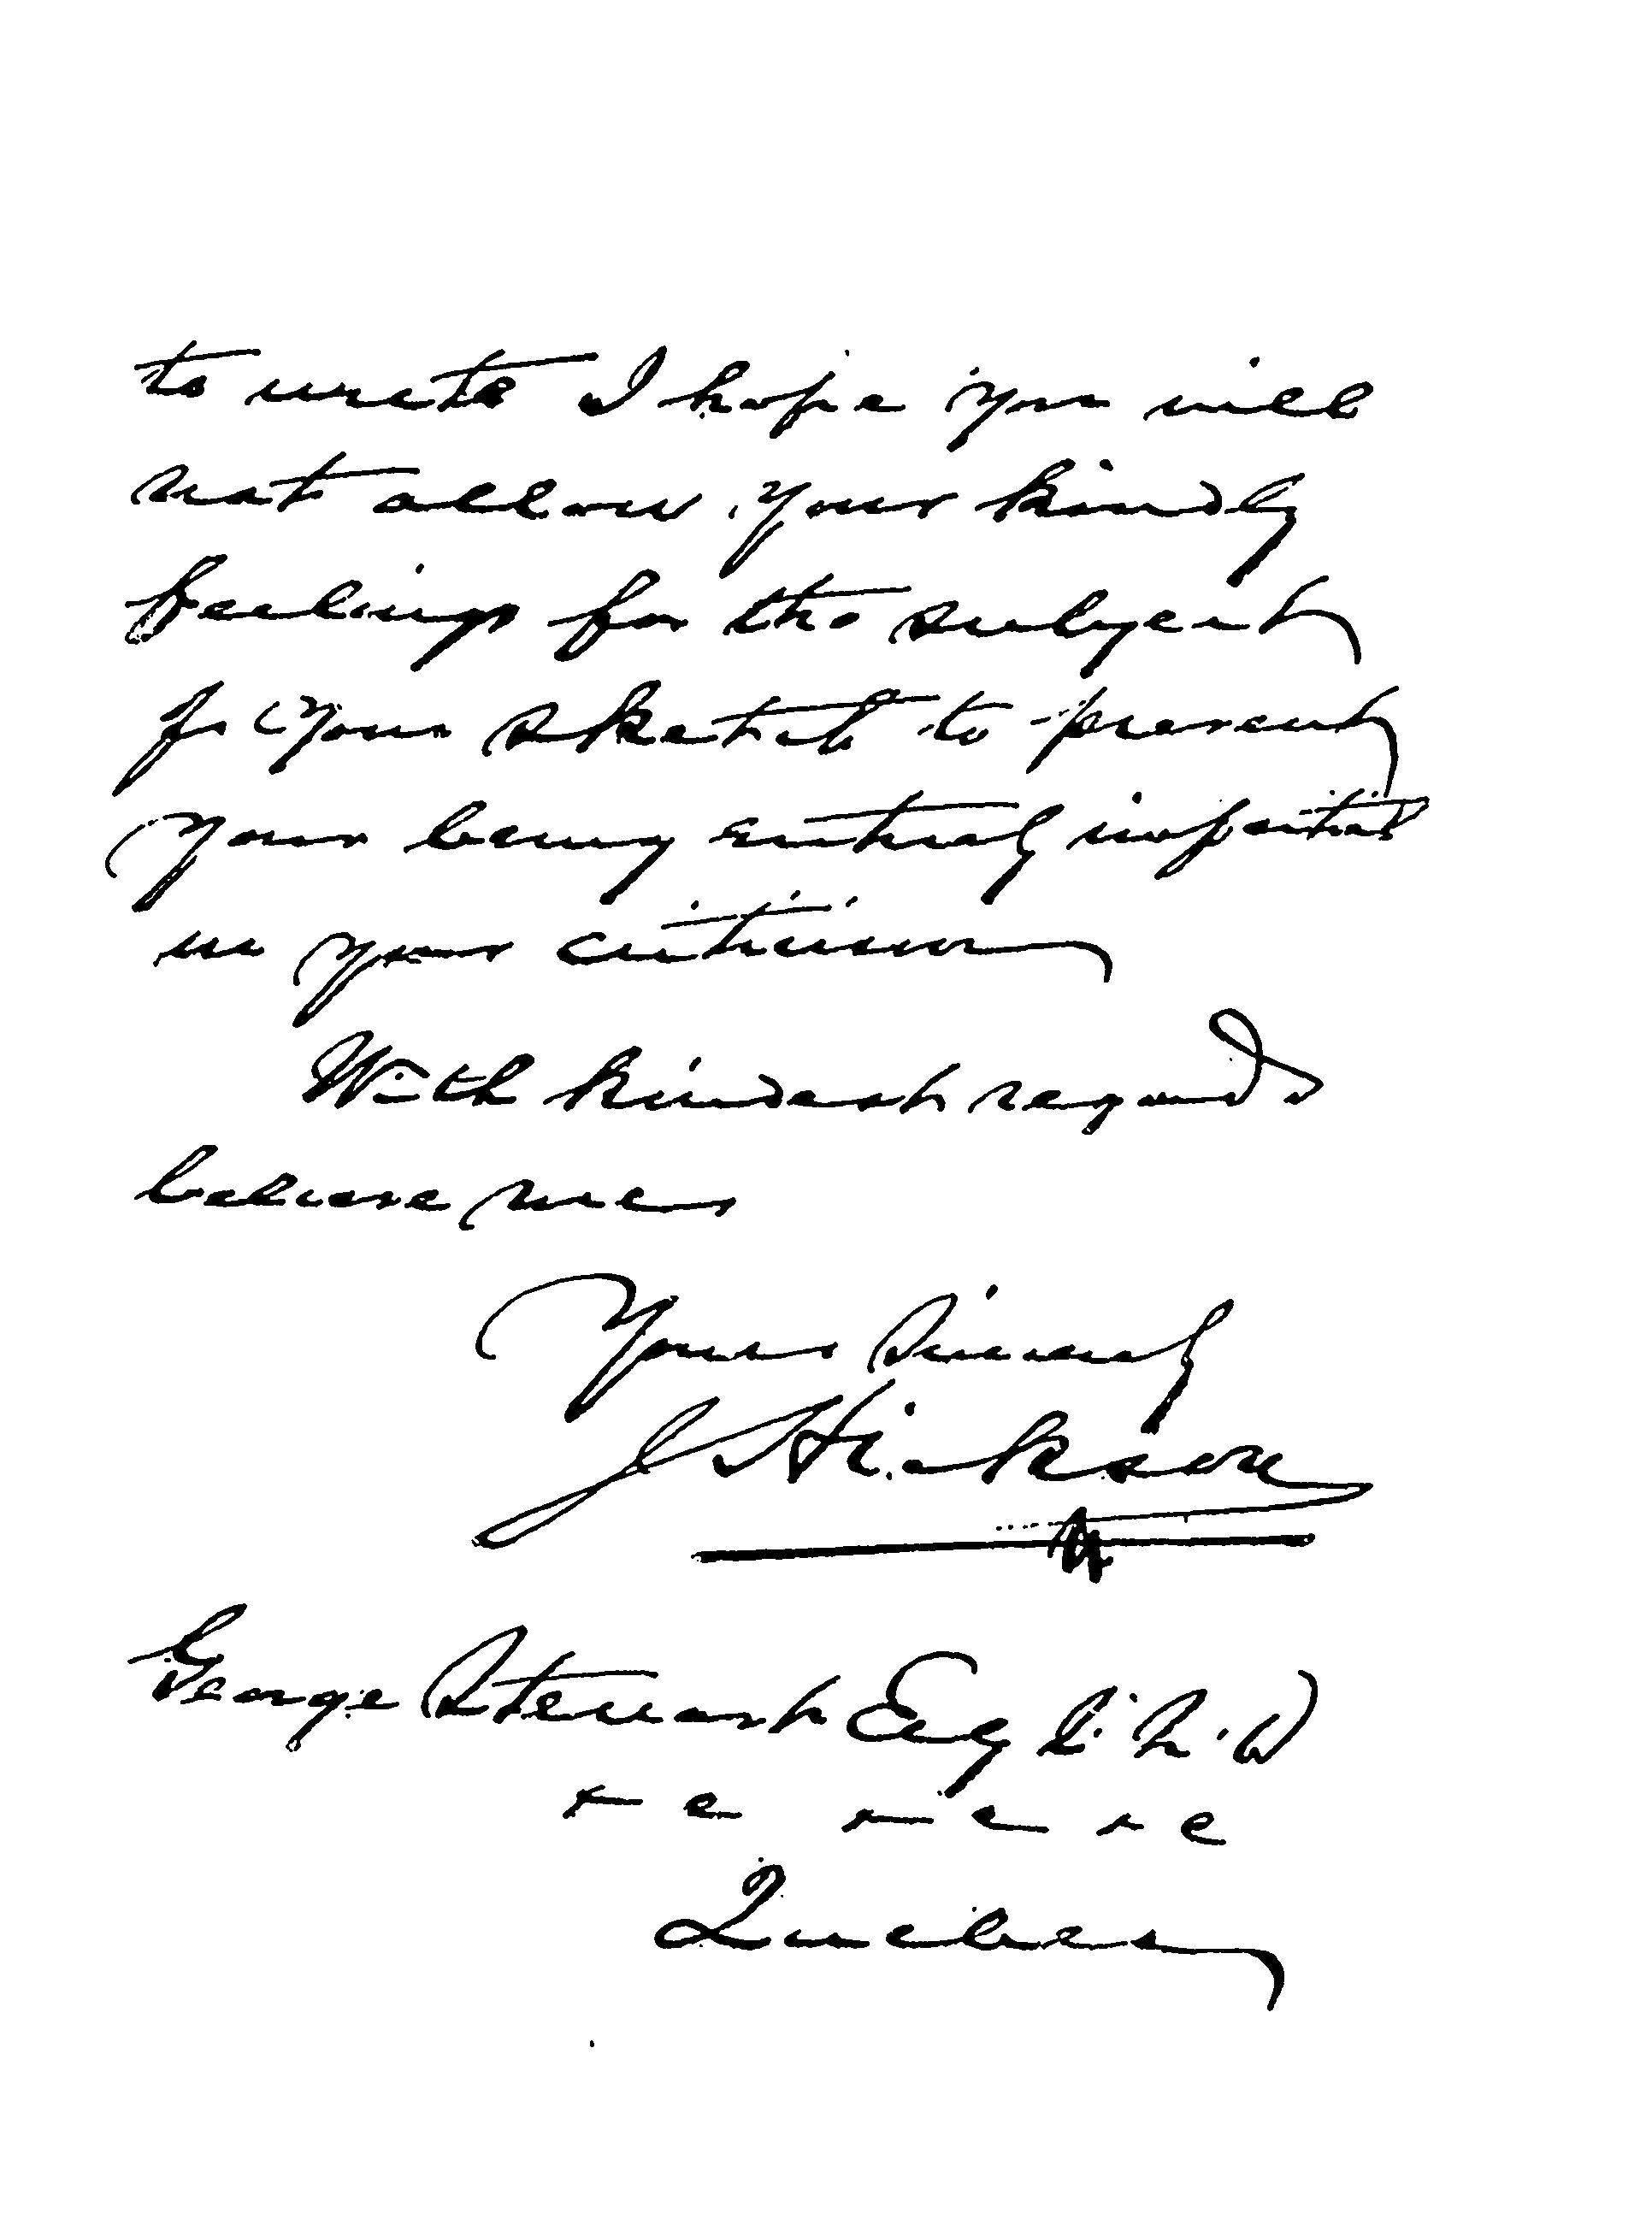 to write I hope you will
not allow your kindly
feelings for the subject
of your sketch to prevent
your being entirely impartial
in your criticism
With kindest regards
believe me
Yours Sincerely
J Hickson
George Stewart Esq
Quebec